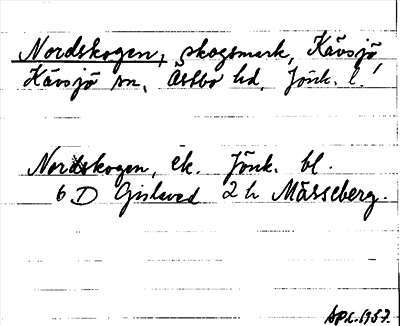 Nordskogen, skogsmark, Kävsjö
Kävsjö sn, Östbo hd, Jönk. l.
Nordskogen, ek. Jönk. bl.
6 D Gislaved 2 h Mässeberg.
APL. 1957.